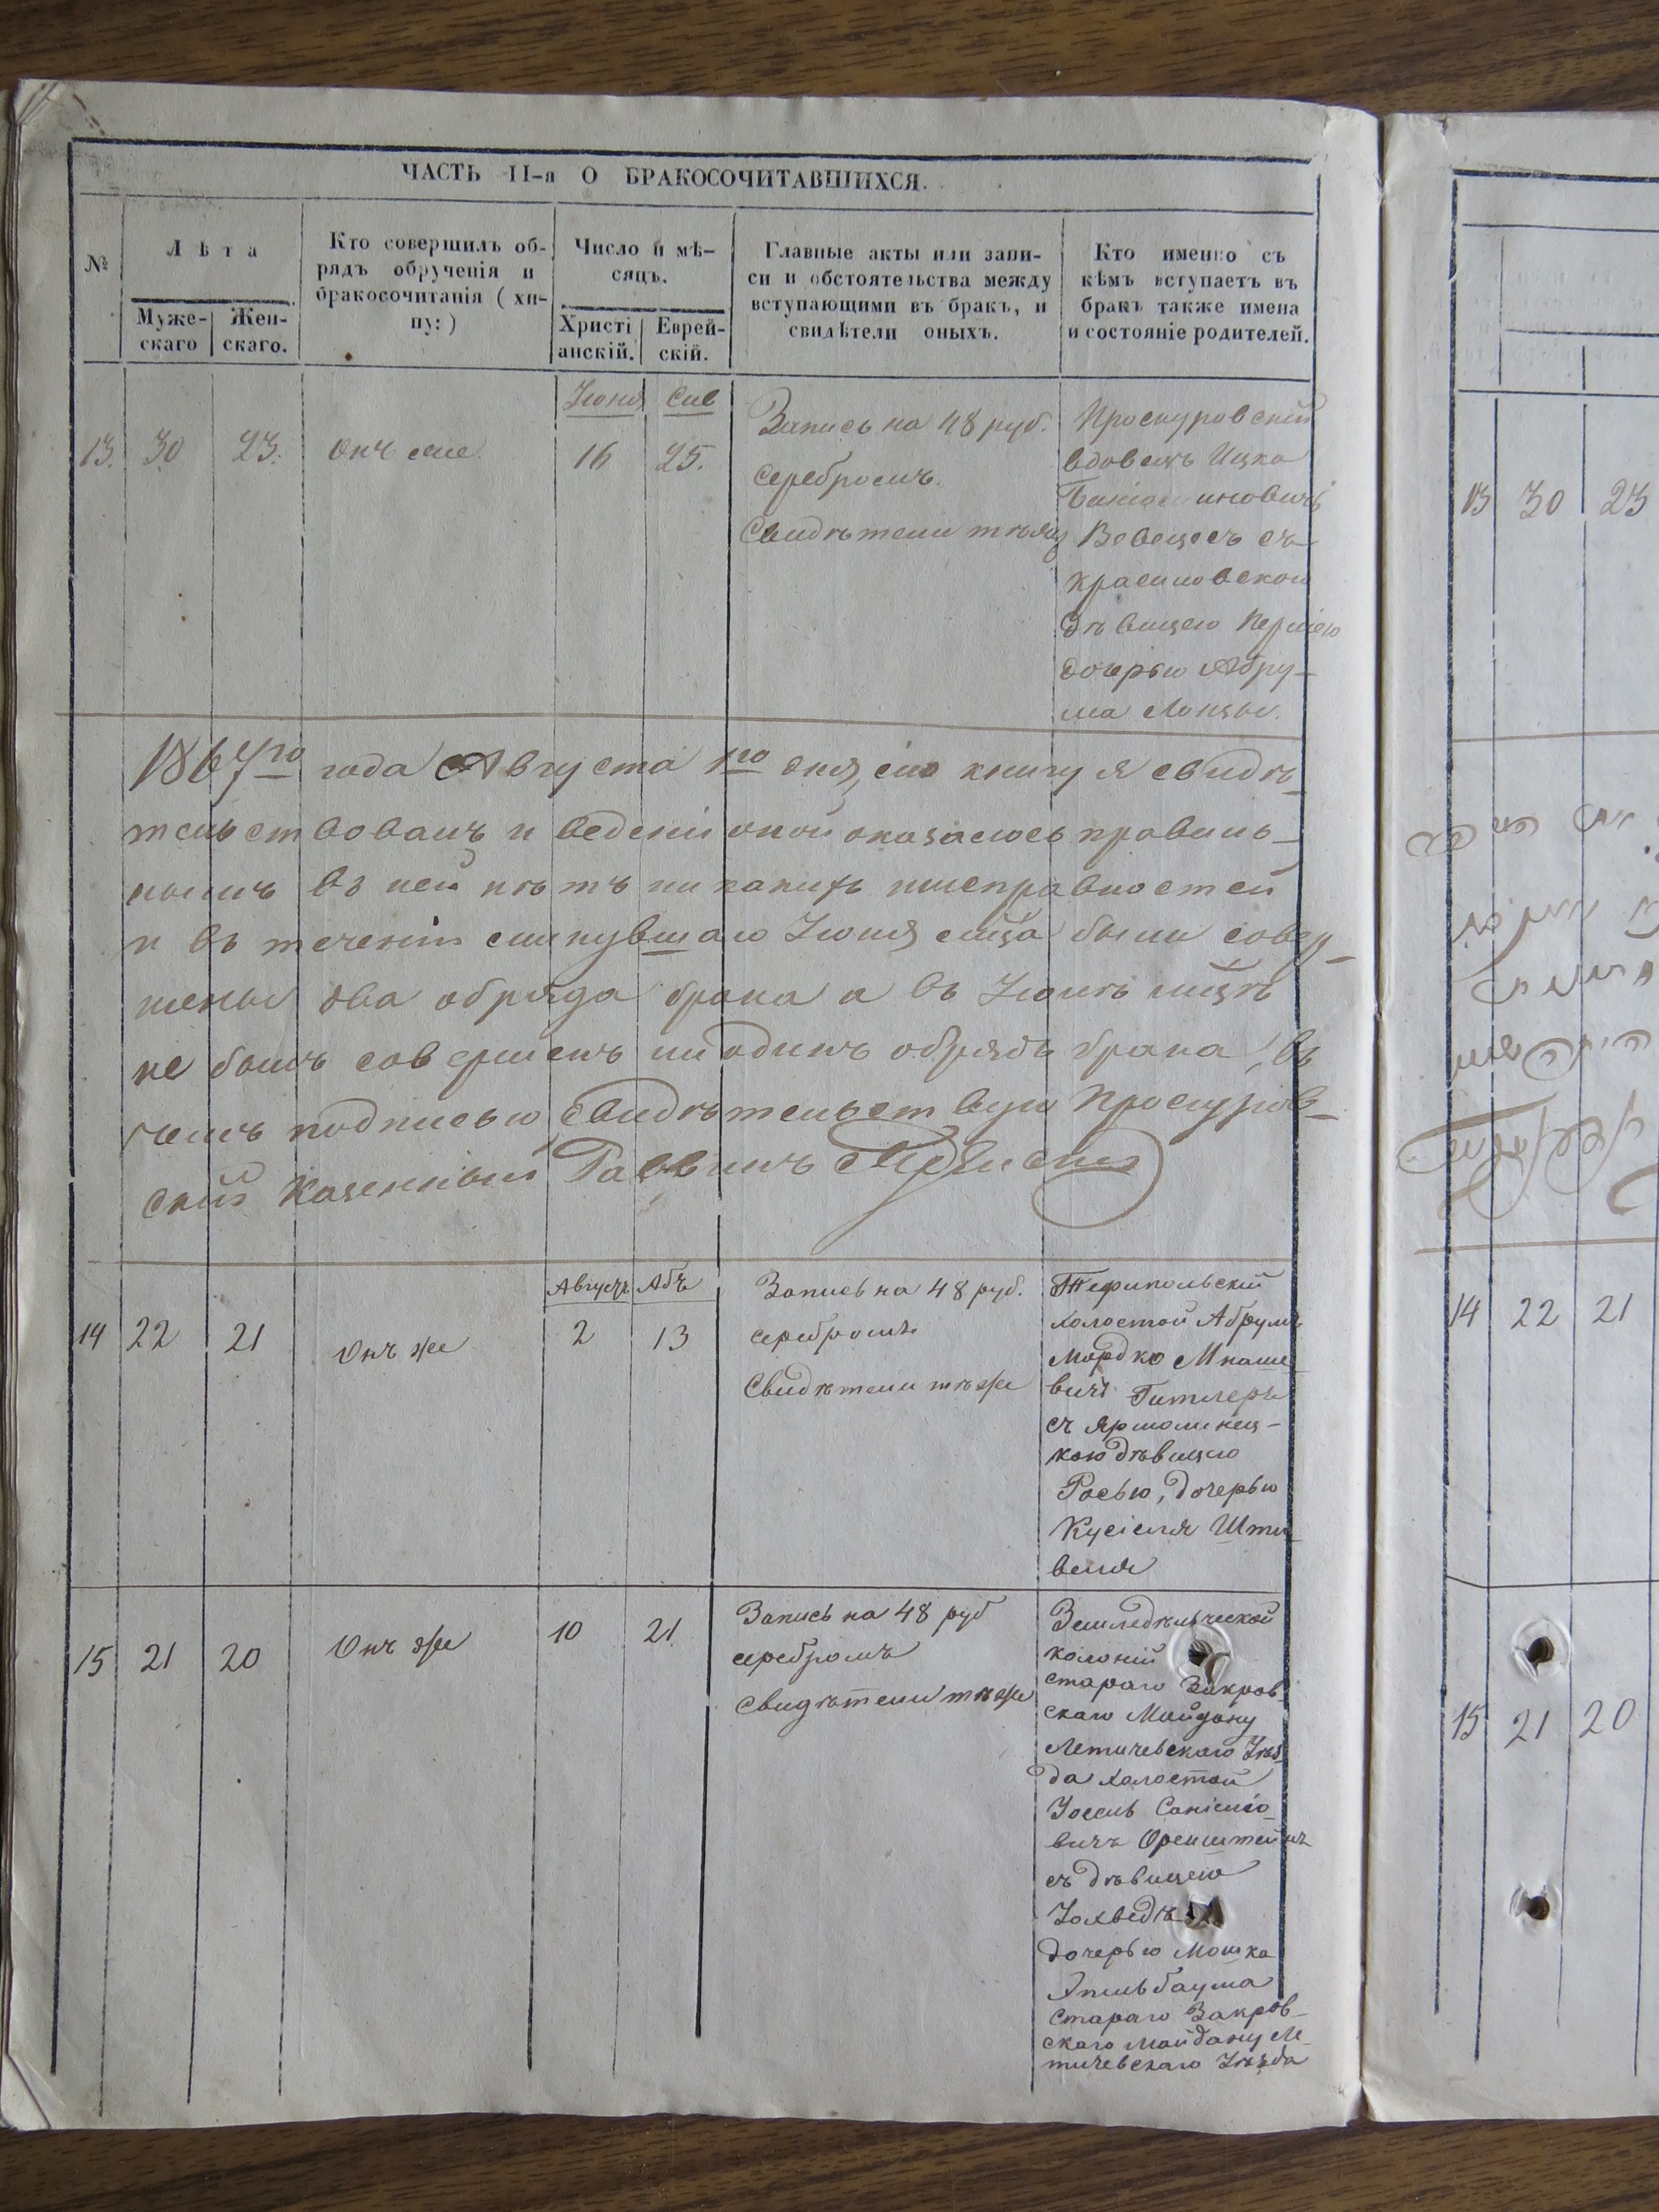 ЧАСТЬ II-я О БРАКОСОЧИТАВШИХСЯ.
№
Лѣта
Муже-
скаго
Жен-
скаго.
Кто совершилъ об-
рядъ обрученія и
бракосочитанія (хи-
пу:)
Число и мѣ-
сяцъ.
Христі
анскій.
Еврей-
скій.
Главные акты или запи-
си и обстоятельства между
вступающими въ бракъ, и
свидѣтели оныхъ.
Кто именно съ
кѣмъ вступаетъ въ
бракъ также имена
и состояніе родителей.
13.
30
23.
Онъ же
Іюня
16
Сив
25.
Запись на 48 руб.
серебромъ.
Свидѣтели тѣже
Проскуровскій
вдовецъ Ицко
съ
красиловскою
дѣвицею Перлею
дочерью Абру-
ма
1867го года Августа 1го дня, сію книгу я свидѣ-
тельствовалъ и веденіи оной оказалось правиль-
нымъ въ ней нѣтъ никакихъ неисправностей
и въ теченіи минувшаго Іюня мѣца были совер-
шены два обряда брака а въ Іюлѣ мѣцѣ
не былъ совершенъ ни одинъ обрядъ брака, въ
чемъ подписью свидѣтельствую Проскуров-
скій Казенный Раввинъ
14
22
21
Онъ же
Августъ
2
Абъ
13
Запись на 48 руб.
серебромъ
Свидѣтели тѣже
Теофипольскій
холостой Абрумъ
Мордко Мнаше-
вичъ Гитлеръ
съ Ярмолинец-
кою дѣвицею
Росью, дочерью
Кусіеля Шти-
веля
15
21
20
Онъ же
10
21
Запись на 48 руб
серебромъ
свидѣтели тѣже
Земледѣльческой
колоніи
стараго Закров-
скаго Майдану
Летичевскаго Уѣз-
да холостой
Іосель
вичъ Оренштейнъ
съ дѣвицею
Іохведъ
дочерью Мошка
Эпельбаума
стараго Закров-
скаго Майдану Ле-
тичевскаго Уѣзда
13
30
23
14
22
21
15
21
20